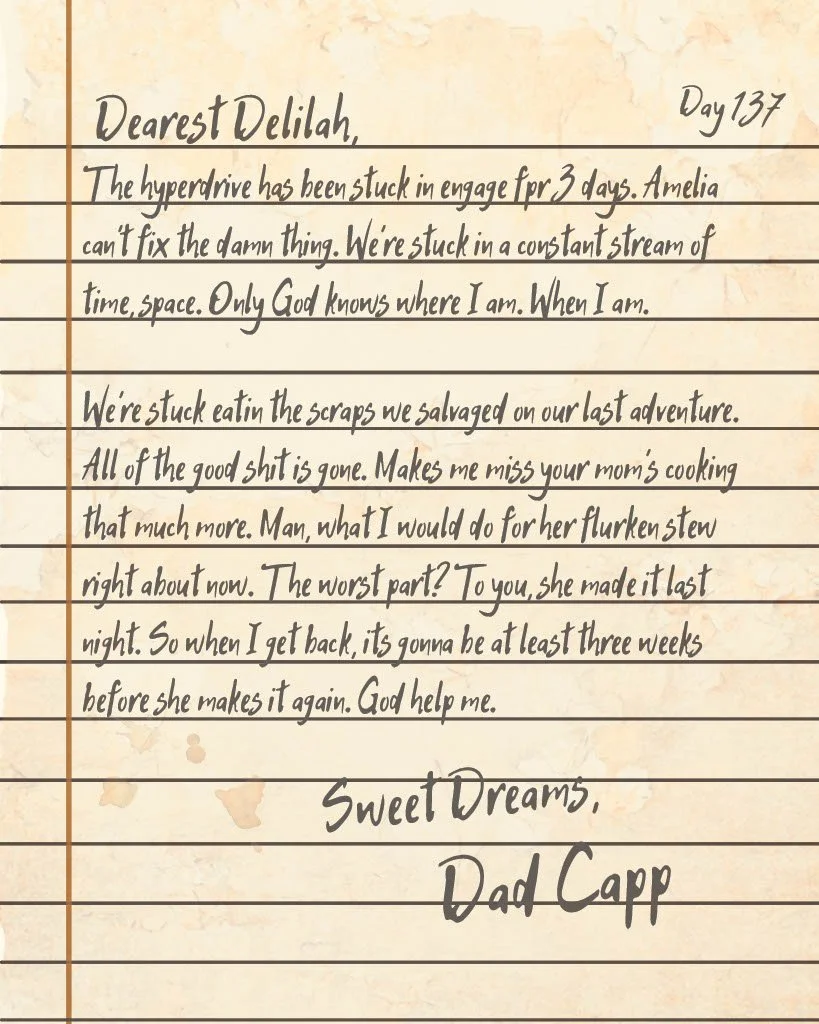 Dearest Delilah,
Day 137
The hyperdrive has been stuck in engage fpr 3 days. Amelia
can't fix the damn thing. We're stuck in a constant stream of
time, space. Only God knows where I am. When I am.
We're stuck eatin the scraps we salvaged on our last adventure.
All of the good shit is gone. Makes me miss your mom's cooking
that much more. Man, what I would do for her flurken stew
right about now. The worst part? To you, she made it last
night. So when I get back, its gonna be at least three weeks
before she makes it again. God help me.
Sweet Dreams,
Dad Capp